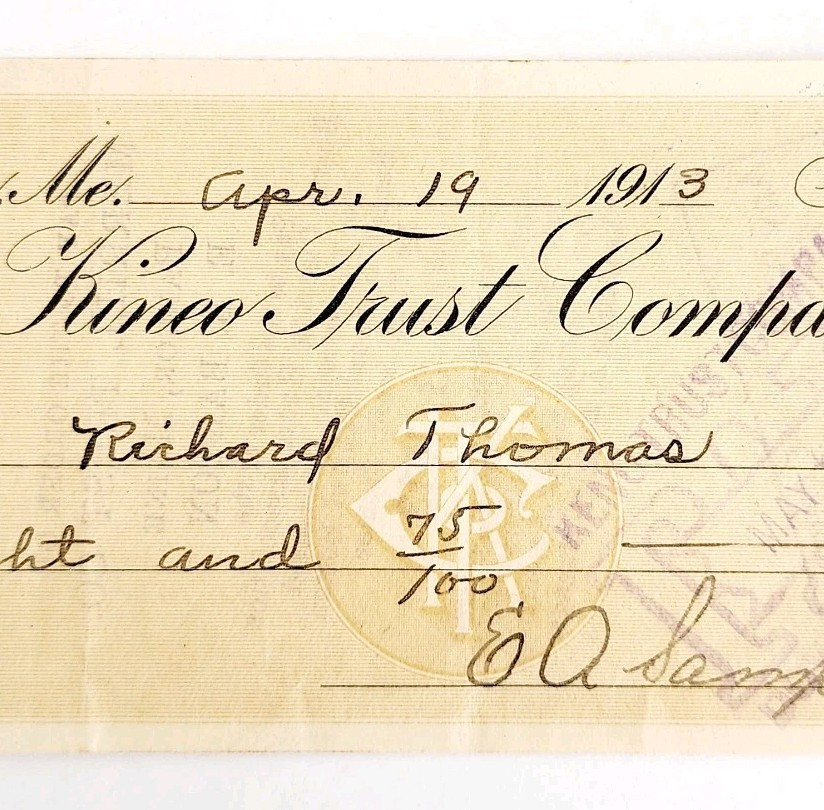 Me. Apr. 19 1913
Kineo Trust Compa
Richard Thomas
ht and 75/100
E A Samp
TRUST
MAY